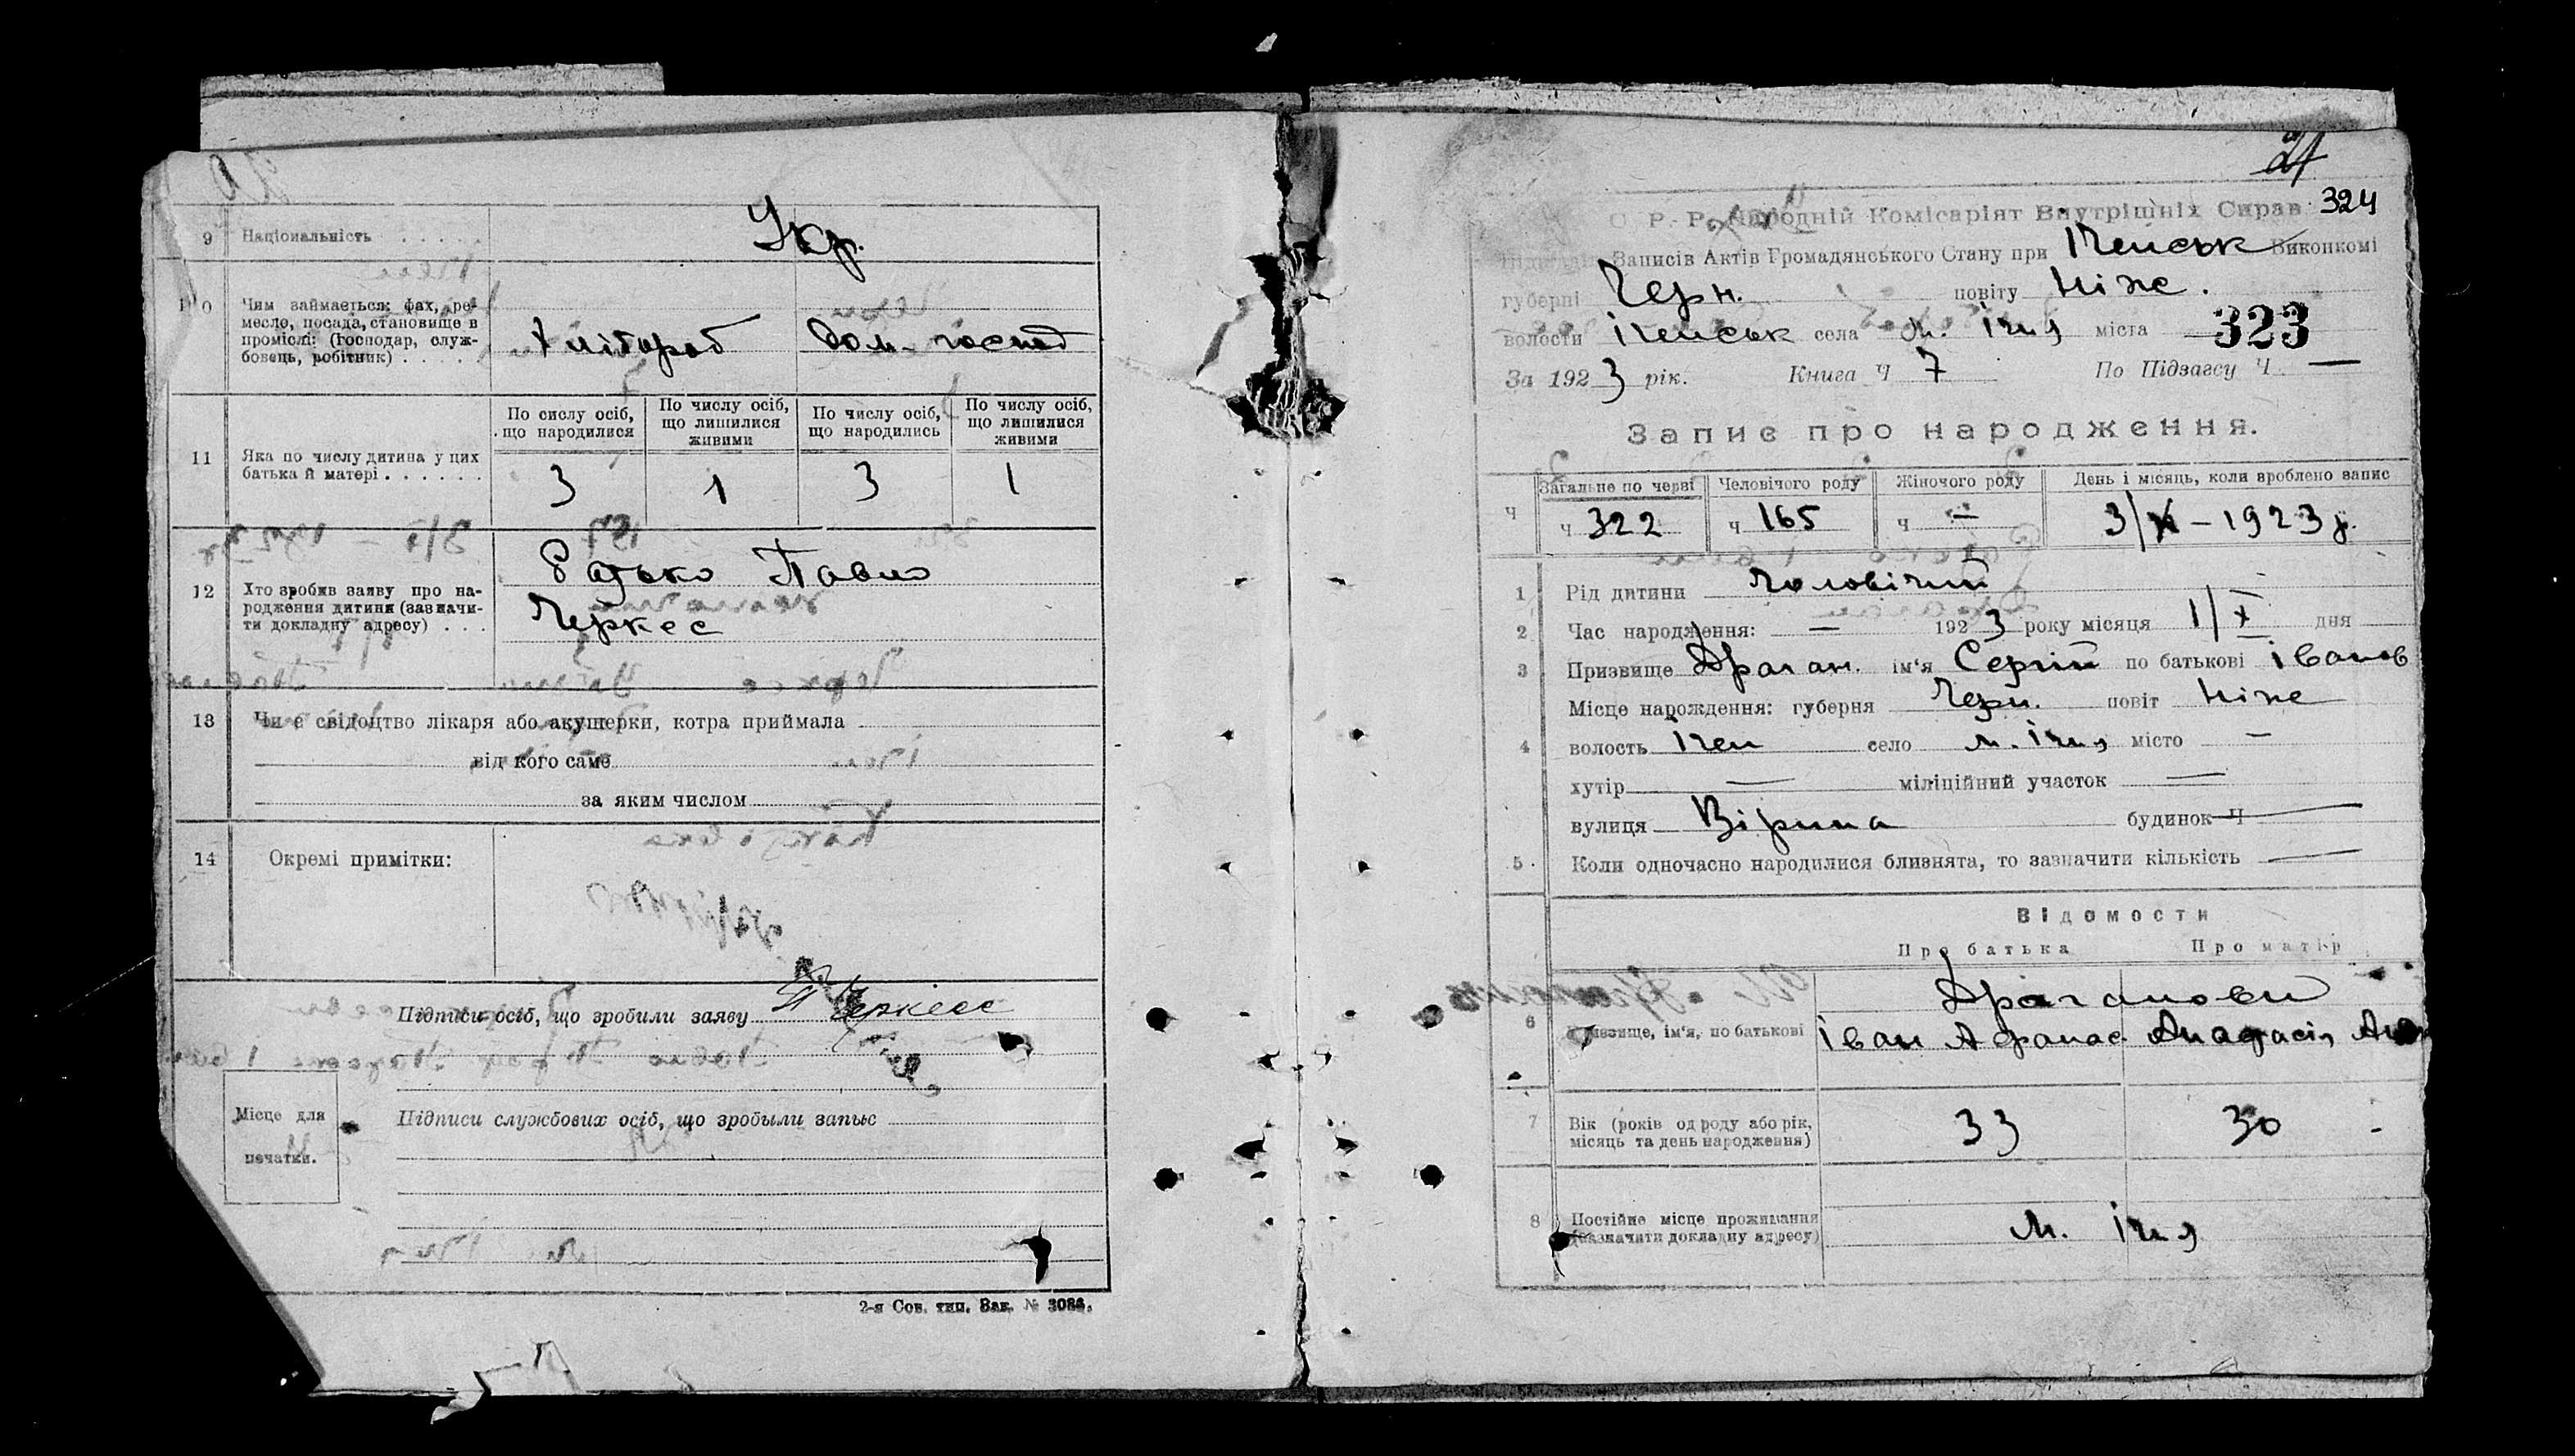 9 Національність . . . . . Укр.
10 Чим займається: фах, ре-
месло, посада, становище в
промислі: (господар, служ-
бовець, робітник) . . . . Хлібороб Дом. господ
11 Яка по числу дитина у цих
батька й матері . . . . . .
По числу осіб, що народилися
По числу осіб, що лишилися живими
По числу осіб, що народились
По числу осіб, що лишилися живими
3 1 3 1
12 Хто зробив заяву про на-
родження дитини (зазначи-
ти докладну адресу) . . .
Батько Павло
Черкес
13 Чи є свідоцтво лікаря або акушерки, котра приймала
від кого саме
за яким числом
14 Окремі примітки:
Підписи осіб, що зробили заяву П Черкес
Місце для
печатки.
Підписи службових осіб, що зробыли запыс
2-я Сов. тип. Зак. № 3084.
21
324
Р. Р. Народній Комісаріят Внутрішніх Справ
Записів Актів Громадянського Стану при Іченськ Виконкомі
губерні Черн. повіту Ніже.
волости Іченськ села м. Ічня міста 323
За 1923 рік. Книга Ч 7 По Підзагсу Ч. —
Запис про народження.
Ч
Загальне по черзі Человічого роду Жіночого роду День і місяць, коли зроблено запис
ч 322 ч 165 ч — 3/X – 1923 р.
1 Рід дитини чоловічий
2 Час народження: — 1923 року місяця 1/X дня
3 Призвище Драган. ім'я Сергій по батькові Іванов
4 Місце народження: губерня Черн. повіт Ніже
волость Ічен село м. Ічня місто —
хутір — міліційний участок —
вулиця Вірина будинок Ч —
5 Коли одночасно народилися близнята, то зазначити кількість —
Відомости
Про батька Про матір
6 Призвище, ім'я, по батькові
Драганови
Іван Афанас. Анастасія
7 Вік (років од роду або рік,
місяць та день народження) 33 30
8 Постійне місце проживання
(зазначити докладну адресу) м. Ічня